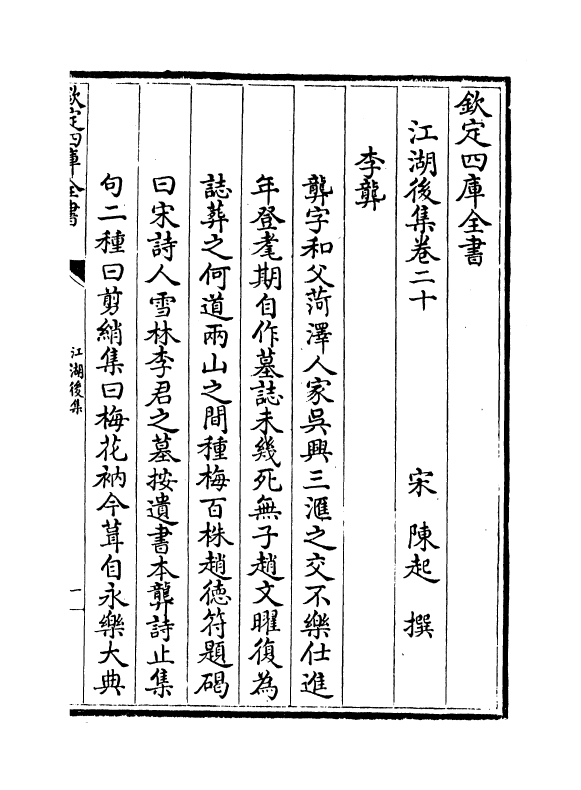 欽定四庫全書
江湖後集卷二十
宋 陳起 撰
李龏
龏字和父菏澤人家吳興三滙之交不樂仕進
年登耄期自作墓誌未幾死無子趙文曜復為
誌葬之何道兩山之間種梅百株趙德符題碣
曰宋詩人雪林李君之墓按遺書本龏詩止集
句二種曰剪綃集曰梅花衲今葺自永樂大典
欽定四庫全書
江湖後集
一